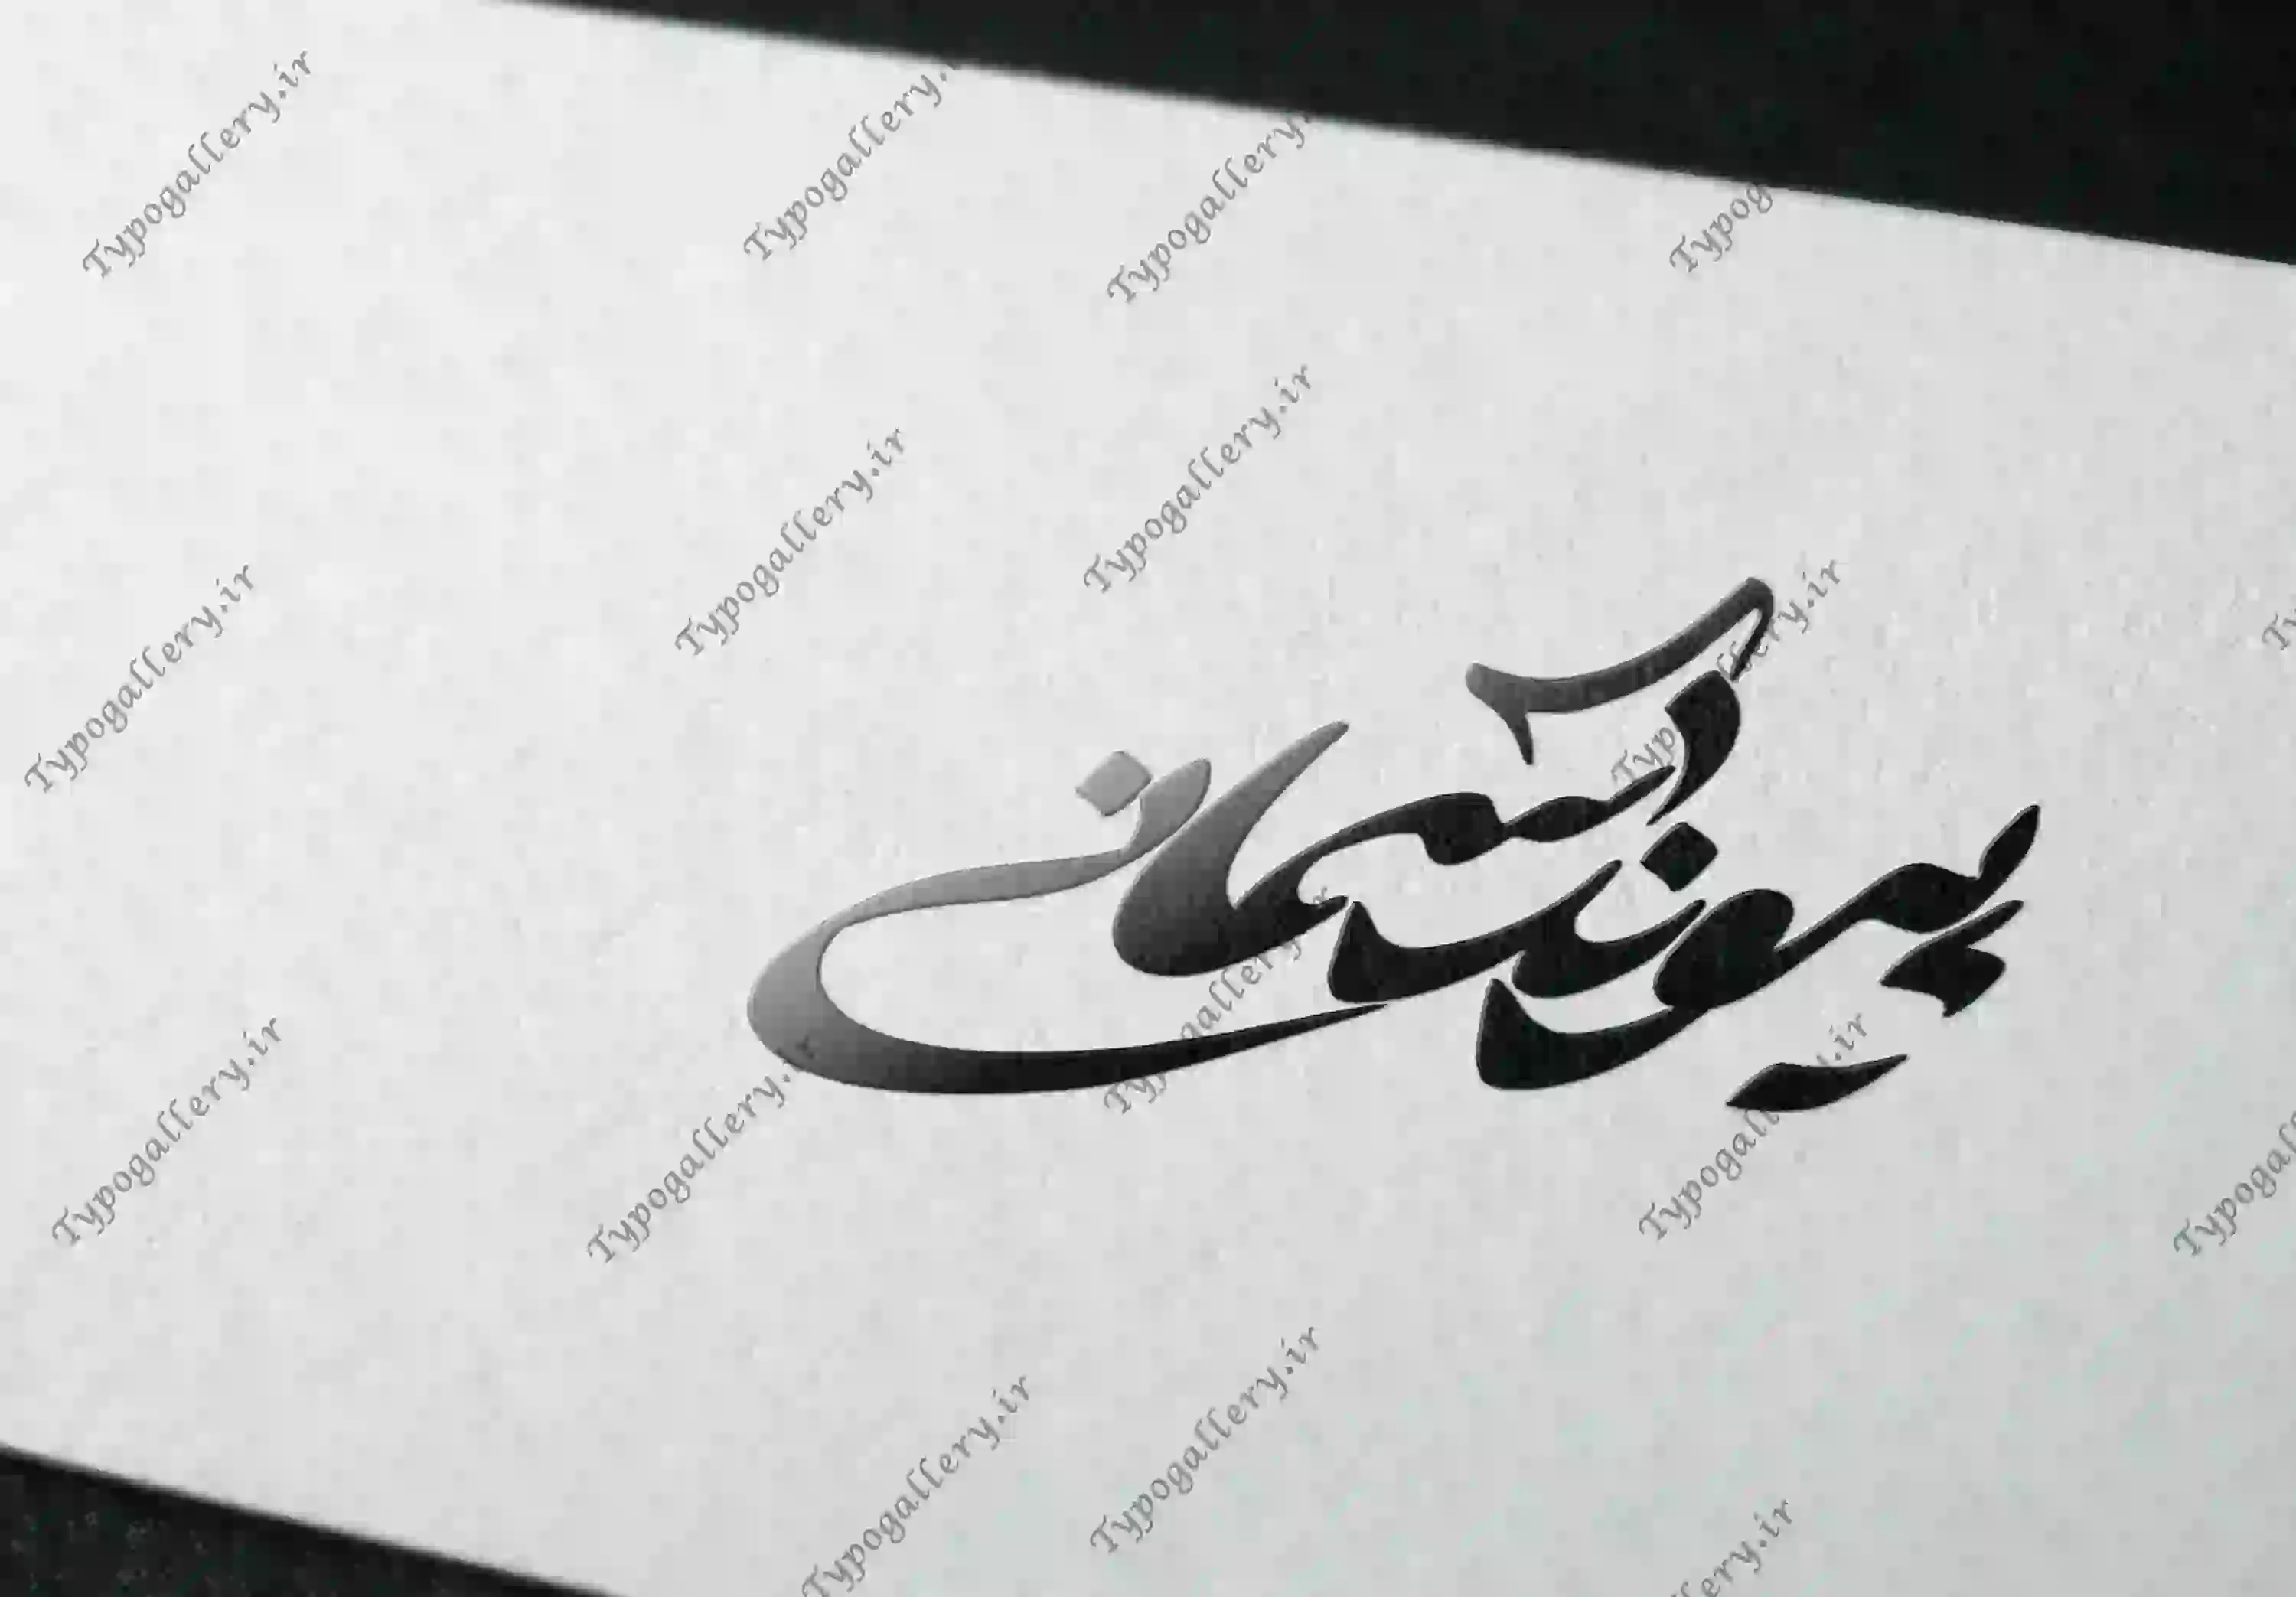 Typogallery.ir
Typogallery.
Typogallery.
Typog
Typogallery.ir
Typogallery.ir
Typogallery.ir
پیوند آسمانی
Typogallery.ir
Typogallery.ir
Typogallery.ir
Typogallery.ir
Typogallery.ir
Typogallery.ir